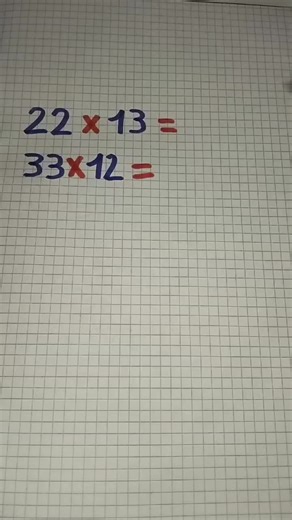 22 x 13 =
33x12 =